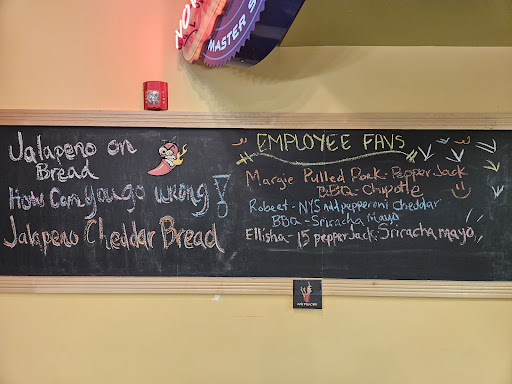 MASTER S
Jalapeno on
Bread
How Can you go wrong!
Jalapeno Cheddar Bread
EMPLOYEE FAVS
Margie Pulled Pork-Pepper Jack
BBQ-Chipotle
Robert-NYS Add pepperoni Cheddar
BBQ-Sriracha Mayo
Ellisha-15 pepper Jack-Sriracha mayo